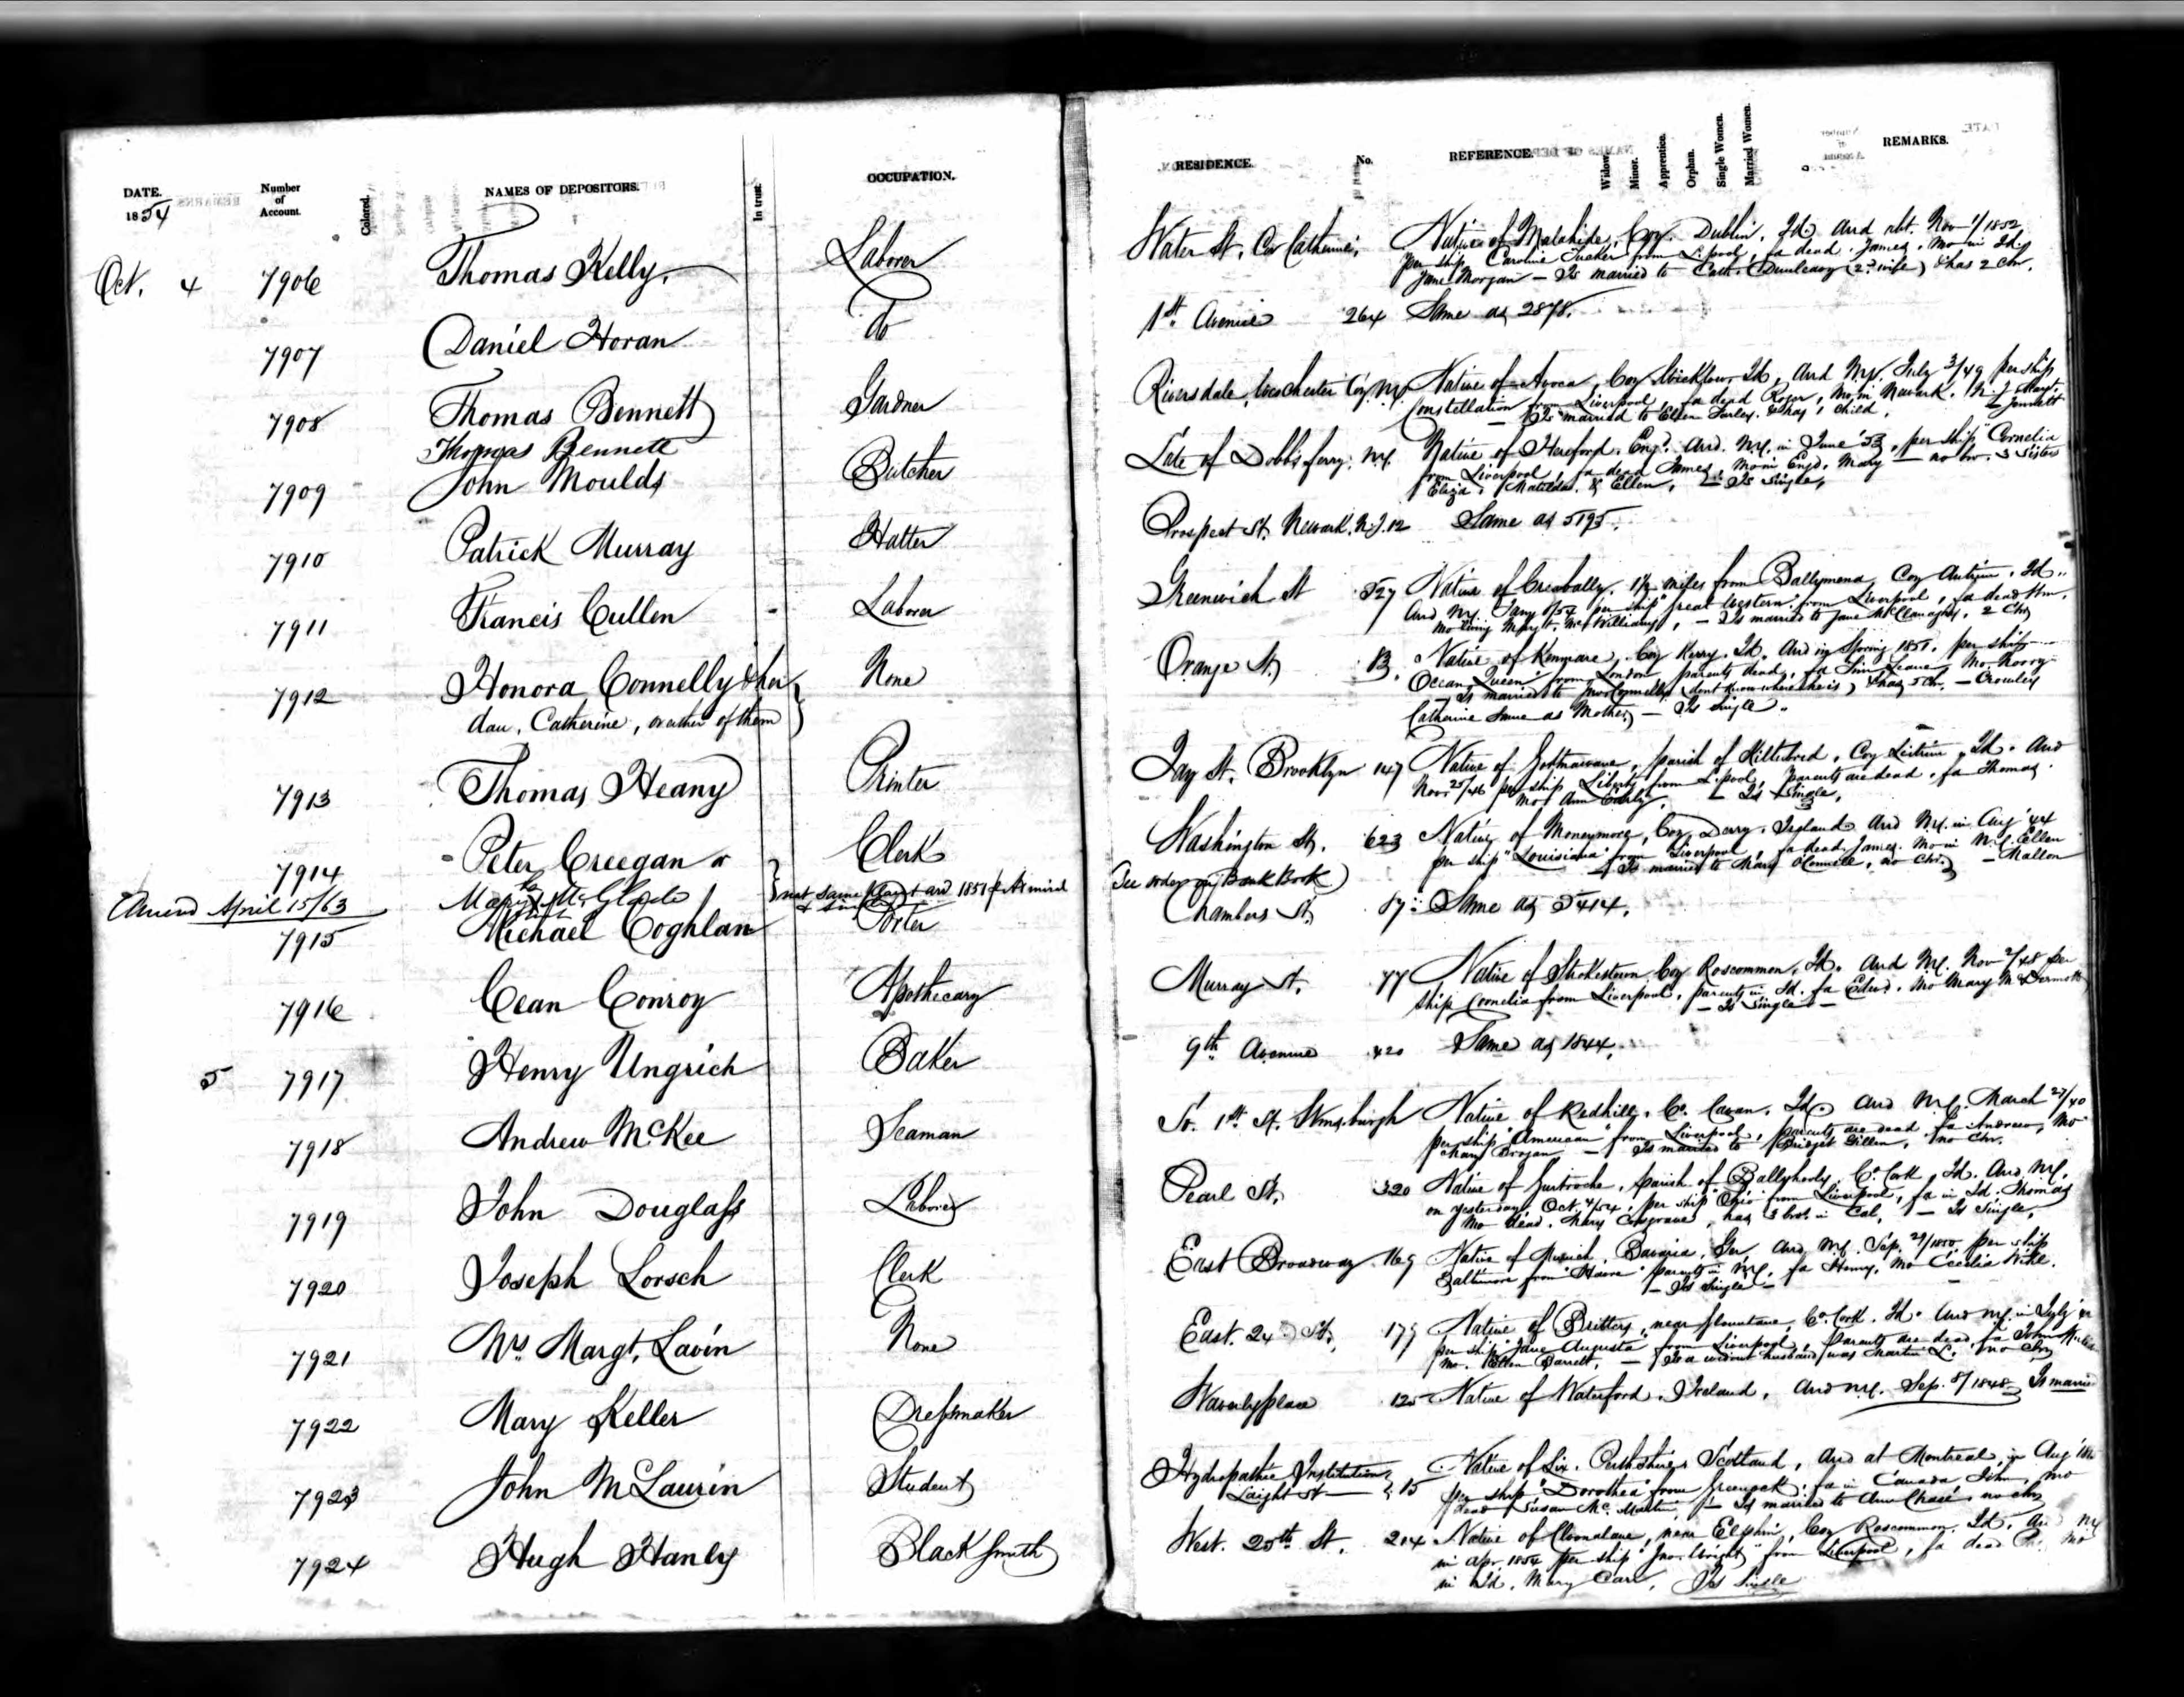 DATE. Number of Account. Colored. NAMES OF DEPOSITORS. In trust. OCCUPATION. RESIDENCE. No. REFERENCE. Widow. Minor. Apprentice. Orphan. Single Women. Married Women. REMARKS.
1854
Oct. 4 7906 Thomas Kelly. Laborer Water St. Cor Catherine. Native of Malahide, Coy. Dublin. Id. and abt. Nov 1/1852
per ship Caroline Tucker from L.pool, fa dead James, Mo in Id.
Jane Morgan — Is married to Cath. Dunleavy (2d wife) & has 2 Chn.
7907 Daniel Horan do 1st Avenue 264 Same as 2878.
7908 Thomas Bennett Gardner Riversdale, Westchester Coy. N.Y. Native of Avoca, Coy Wicklow, Id, Arrd N.Y. July 3/49 per ship
Constellation from Liverpool, fa dead Roger, Mo in Newark. N.J. Margt.
— Is married to Ellen Farley. & has 1 child.
Thomas Bennett
7909 John Moulds Butcher Late of Dobbs ferry. N.Y. Native of Hereford. Engd. Arrd. N.Y. in June '53, per ship "Cornelia
from Liverpool, fa dead James, Mo in Engd. Mary — no br. 3 Sisters
Eliza, Matilda. & Ellen, — Is Single,
7910 Patrick Murray Hatter Prospect St. Newark. N.J. 12 Same as 5195.
7911 Francis Cullen Laborer Greenwich St 527 Native of 1½ miles from Ballymena, Coy Antrim. Id.
Arrd N.Y. Jany 8/54 per ship "Great Western" from Liverpool, fa dead
Mo living Mary McWilliams, — Is married to Jane McClanaghy, 2 Chn
7912 Honora Connelly & her None Orange St. 13. Native of Kenmare, Coy Kerry. Id. Arrd in Spring 1851. per ship
dau. Catherine, or either of them Ocean Queen from London, parents dead, fa Tim Leane, Mo. Norry
— Is married to Connelly (dont know where he is) & has 5 Ch. — Crowley
Catherine Same as Mother, — Is Single.
7913 Thomas Heany Printer Jay St. Brooklyn 147 Native of parish of Coy Leitrim, Id. Arrd
Nov. 25/46 per ship Liberty from L'pool, parents are dead, fa Thomas.
Mo Ann Early, — Is Single,
7914 Peter Creegan or Clerk Washington St. 623 Native of Moneymore, Coy Derry. Ireland Arrd N.Y. in Aug '44
per ship "Louisiana" from Liverpool, fa dead James. Mo in N.Y. Ellen
— Is married to Mary OConnell, no Chn. — Mallon
Amend April 15/63 Mary McGlade nat same ard 1851 (See order in Bank Book)
7915 Michael Coghlan Porter Chambers St. 87 Same as 5414.
7916 Cean Conroy Apothecary Murray St. 77 Native of Strokestown Coy Roscommon, Id. Arrd N.Y. Nov 2/48 per
ship Cornelia from Liverpool, parents in Id. fa Edwd. Mo Mary McDermott
— Is Single —
5 7917 Henry Ungrich Baker 9th Avenue 420 Same as 1844.
7918 Andrew McKee Seaman So. 1st St. Wmsburgh Native of Redhill. Co. Cavan. Id. Arrd N.Y. March 27/40
per ship "American" from Liverpool, parents are dead, fa Andrew, Mo
Mary Brogan — Is married to Bridget Gillen, no Chn.
7919 John Douglass Laborer Pearl St. 320 Native of parish of Co. Cork, Id. Arrd N.Y.
on yesterday Oct. 4/54, per ship "Ohio" from Liverpool, fa in Id. Thomas
Mo dead. Mary Cosgrave, has 3 brot. in Cal. — Is Single,
7920 Joseph Lorsch Clerk East Broadway 169 Native of Munich, Bavaria, Ger. Arrd N.Y. Sep. 29/1850 per ship
Baltimore from "Havre" parents in N.Y. fa Henry, Mo Cecilia
— Is Single —
7921 Mrs. Margt. Lavin None East. 24 St. 179 Native of Brittas, near Co. Cork. Id. Arrd N.Y. in July
per ship "Jane Augusta" from Liverpool, Parents are dead, fa John
Mo. Ellen Barrett, — Is a widow husband was Martin L. no Chn
7922 Mary Keller Dressmaker Waverly place 125 Native of Waterford. Ireland, Arrd N.Y. Sep. 8/1848 Is marri
7923 John McLaurin Student Hydropathic Institution 15 Native of Lix. Perthshire Scotland, Arrd at Montreal, in Aug
Laight St per ship "Dorothea" from Greenock, fa in Canada John, Mo
dead Susan McMartin, — Is married to Ann Chase, no chn
7924 Hugh Hanly Black Smith West. 25th St. 214 Native of near Elphin, Coy Roscommon, Id. Arr N.Y
in Apr. 1854 per ship "Jno. Wright" from Liverpool, fa dead Mo
in Id. Mary Carr, Is Single